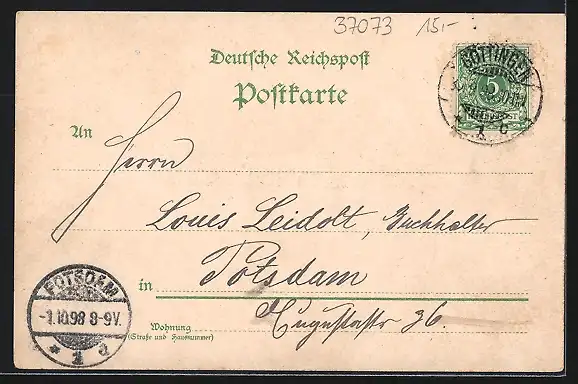 37073 15.-
Deutsche Reichspost
Postkarte
GÖTTINGEN
5
An
Herrn
Louis Leidolt, Buchhalter
in Potsdam
Augustastr 36.
Wohnung
(Straße und Hausnummer)
POTSDAM
-1.10.98 8-9V.
* 1 d